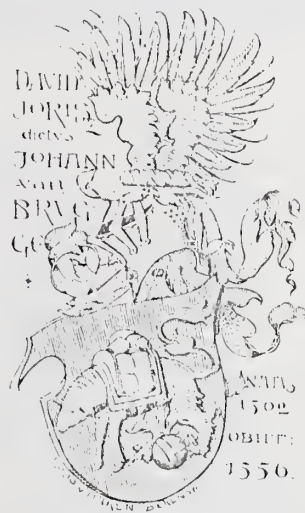 DAVID
JORIS
dictus
JOHANN
van
BRVG
GE
NATVS
1502
OBIIT:
1556.